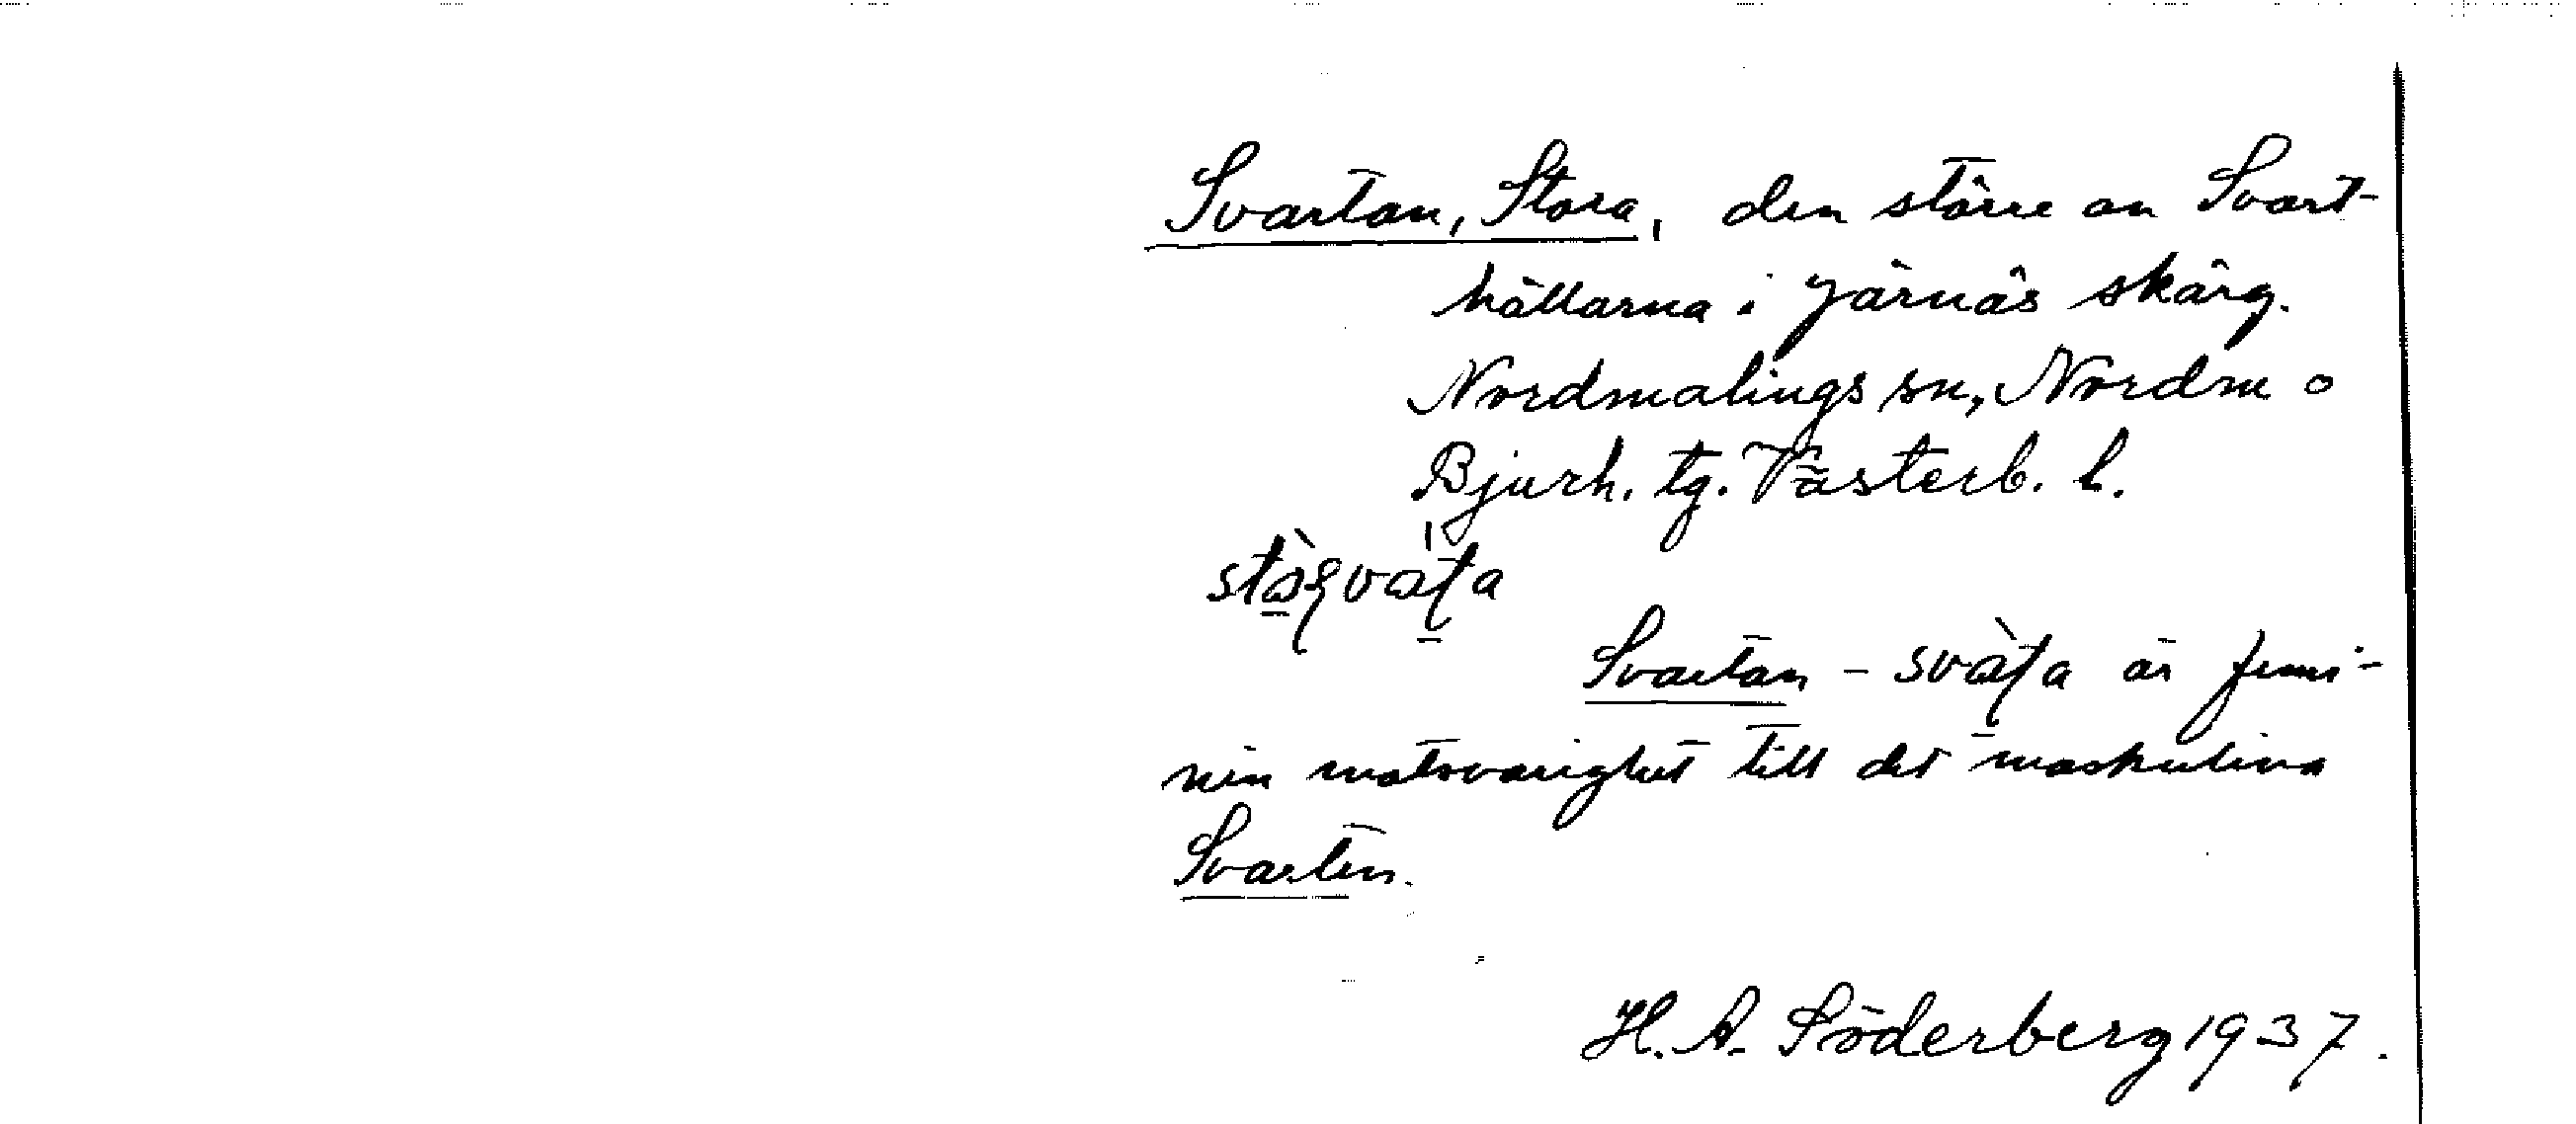 Svartan, Stora, den större av Svart-
hällarna i Järnäs skärg.
Nordmalings sn, Nordm o
Bjurh. tg. Västerb. l.
Svartan – är femi-
nin motsvarighet till det maskulina
Svarten.
H. A. Söderberg 1937.